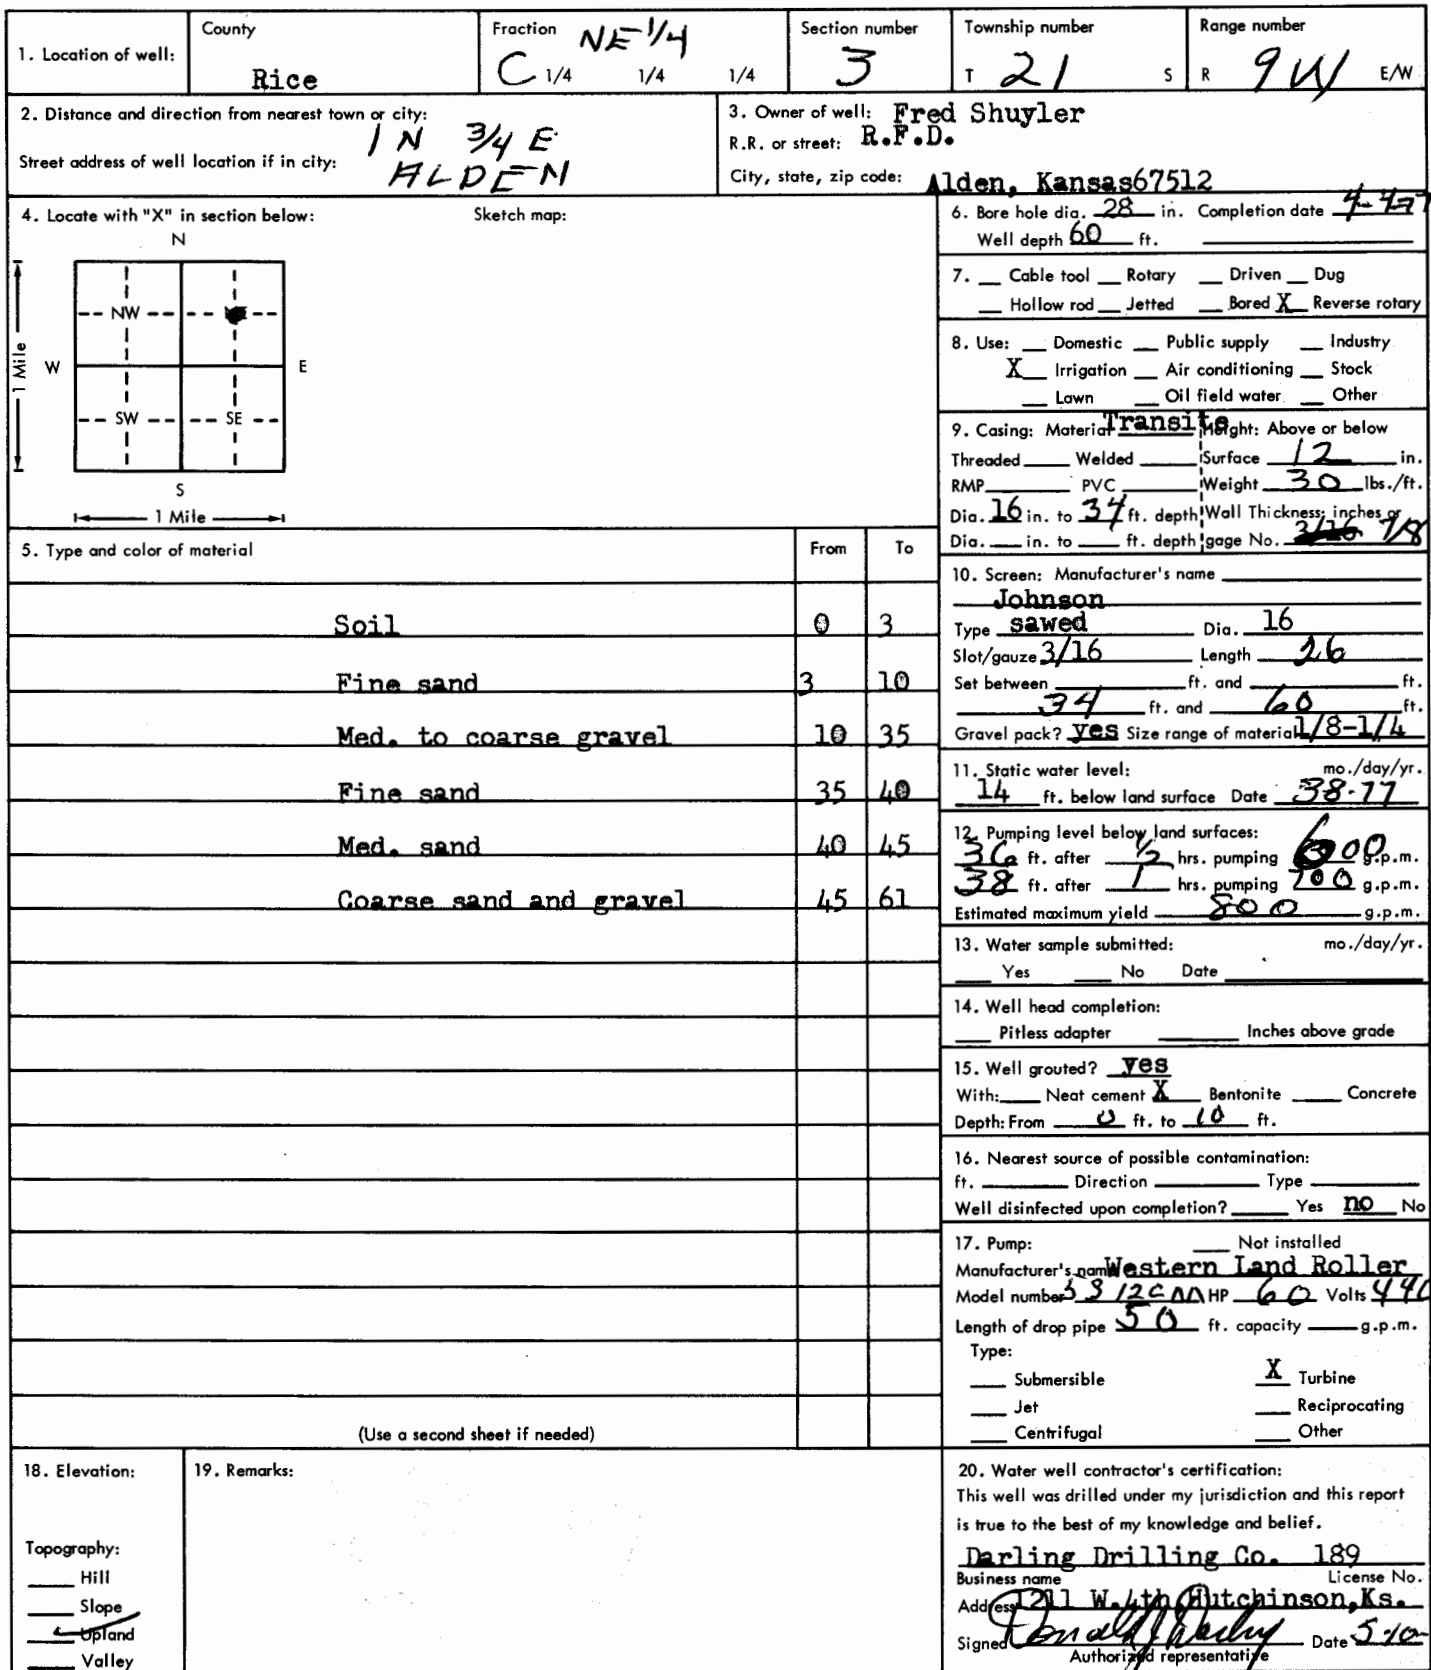 1. Location of well:
County
Rice
Fraction NE 1/4
C 1/4 1/4 1/4
Section number
3
Township number
T 21 S
Range number
R 9W E/W
2. Distance and direction from nearest town or city:
1 N 3/4 E
Street address of well location if in city:
ALDEN
3. Owner of well: Fred Shuyler
R.R. or street: R.F.D.
City, state, zip code: Alden, Kansas67512
4. Locate with "X" in section below:
Sketch map:
N
NW
1 Mile W E
SW SE
S
1 Mile
5. Type and color of material From To
Soil 0 3
Fine sand 3 10
Med. to coarse gravel 10 35
Fine sand 35 40
Med. sand 40 45
Coarse sand and gravel 45 61
(Use a second sheet if needed)
6. Bore hole dia. 28 in. Completion date 4-4-77
Well depth 60 ft.
7. Cable tool Rotary Driven Dug
Hollow rod Jetted Bored X Reverse rotary
8. Use: Domestic Public supply Industry
X Irrigation Air conditioning Stock
Lawn Oil field water Other
9. Casing: Material Transite Height: Above or below
Threaded Welded Surface 12 in.
RMP PVC Weight 30 lbs./ft.
Dia. 16 in. to 34 ft. depth Wall Thickness: inches or
Dia. in. to ft. depth gage No. 3/16 7/8
10. Screen: Manufacturer's name
Johnson
Type sawed Dia. 16
Slot/gauze 3/16 Length 26
Set between ft. and ft.
34 ft. and 60 ft.
Gravel pack? yes Size range of material 1/8-1/4
11. Static water level: mo./day/yr.
14 ft. below land surface Date 38-77
12. Pumping level below land surfaces:
36 ft. after 1/2 hrs. pumping 600 g.p.m.
38 ft. after 1 hrs. pumping 700 g.p.m.
Estimated maximum yield 800 g.p.m.
13. Water sample submitted: mo./day/yr.
Yes No Date
14. Well head completion:
Pitless adapter Inches above grade
15. Well grouted? yes
With: Neat cement X Bentonite Concrete
Depth: From 0 ft. to 10 ft.
16. Nearest source of possible contamination:
ft. Direction Type
Well disinfected upon completion? Yes no No
17. Pump: Not installed
Manufacturer's name Western Land Roller
Model number HP 60 Volts 440
Length of drop pipe 50 ft. capacity g.p.m.
Type:
Submersible X Turbine
Jet Reciprocating
Centrifugal Other
18. Elevation:
Topography:
Hill
Slope
Upland
Valley
19. Remarks:
20. Water well contractor's certification:
This well was drilled under my jurisdiction and this report
is true to the best of my knowledge and belief.
Darling Drilling Co. 189
Business name License No.
Address 1211 W.4th Hutchinson,Ks.
Signed Date 5-10-
Authorized representative